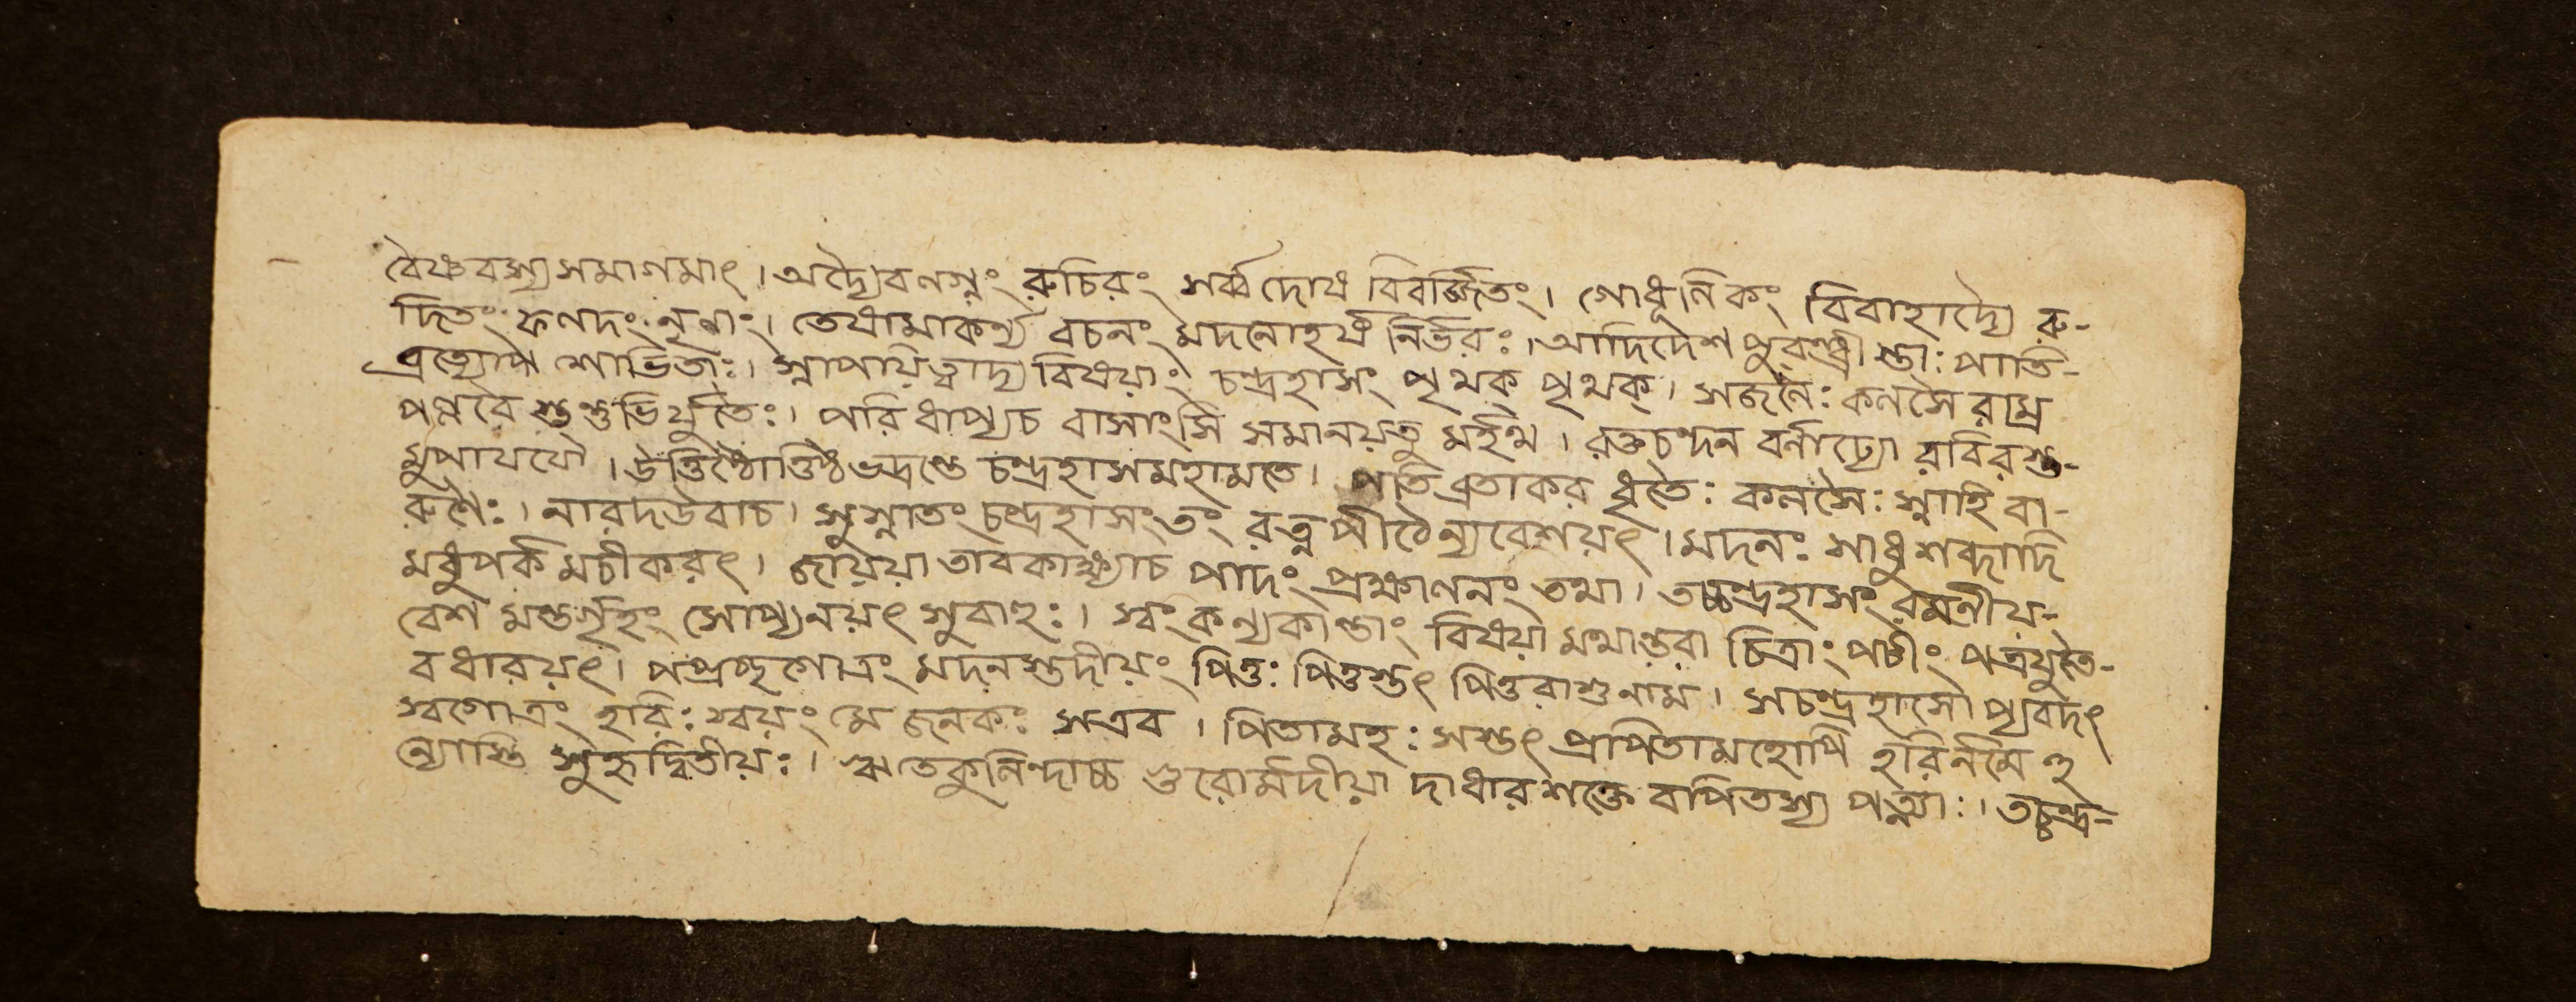 বৈষ্ণবস্য সমাগমাৎ । অদ্যৈব লগ্নং রুচিরং সর্ব্বদোষ বিবর্জ্জিতং । গোধূলিকং বিবাহাদ্যৈ রু-
দিতং ফলদং নৃণাং । তেষামাকর্ণ্য বচনং মদনোহর্ষ নির্ভরঃ । আদিদেশ পুরন্ধ্রী স্তাঃ পাতি-
ব্রত্যোপ শোভিতাঃ । স্নাপয়িত্বাদ্য বিষয়াং চন্দ্রহাসং পৃথক্ পৃথক্ । সজলৈঃ কলসৈ রাম্র
পল্লবৈ স্তন্তুভির্যুতৈঃ । পরিধাপ্যচ বাসাংসি সমানয়তু মর্হথ । রক্তচন্দন বর্ণাঢ্যো রবিরস্ত-
মুপাযযৌ । উত্তিষ্ঠোত্তিষ্ঠ ভদ্রন্তে চন্দ্রহাস মহামতে । পতিব্রতাকর ধৃতৈঃ কলসৈঃ স্নাহি বা-
রুণৈঃ । নারদউবাচ । সুস্নাতং চন্দ্রহাসং তং রত্নপীঠে ন্যবেশয়ৎ । মদনঃ সাধুশব্দাদি
মধুপর্কমচীকরৎ । জায়য়া তাবকাক্ষ্যাচ পাদং প্রক্ষালনং তথা । তচ্চন্দ্রহাসং রমণীয়-
বেশ মন্তর্গৃহং সোপ্যনয়ৎ সুবাহুঃ । স্বং কন্যকান্তাং বিষয়া মথান্তরা চিত্রাং পটীং পত্রযুতৈ-
বধারয়ৎ । পপ্রচ্ছ গোত্রং মদনস্তদীয়ং পিতুঃ পিতুস্তৎ পিতুরাশু নাম । সচন্দ্রহাসো প্যবদৎ
স্বগোত্রং হরিঃ স্বয়ং মে জনকঃ সএব । পিতামহঃ সস্তৎ প্রপিতামহোপি হরির্নমে
ন্যোস্তি সুহৃদ্দ্বিতীয়ঃ । ঋতে কুলিন্দাচ্চ গুরোর্মদীয়া দাধার শক্তে বাপিতস্য পত্ন্যাঃ । তচ্চন্দ্র-